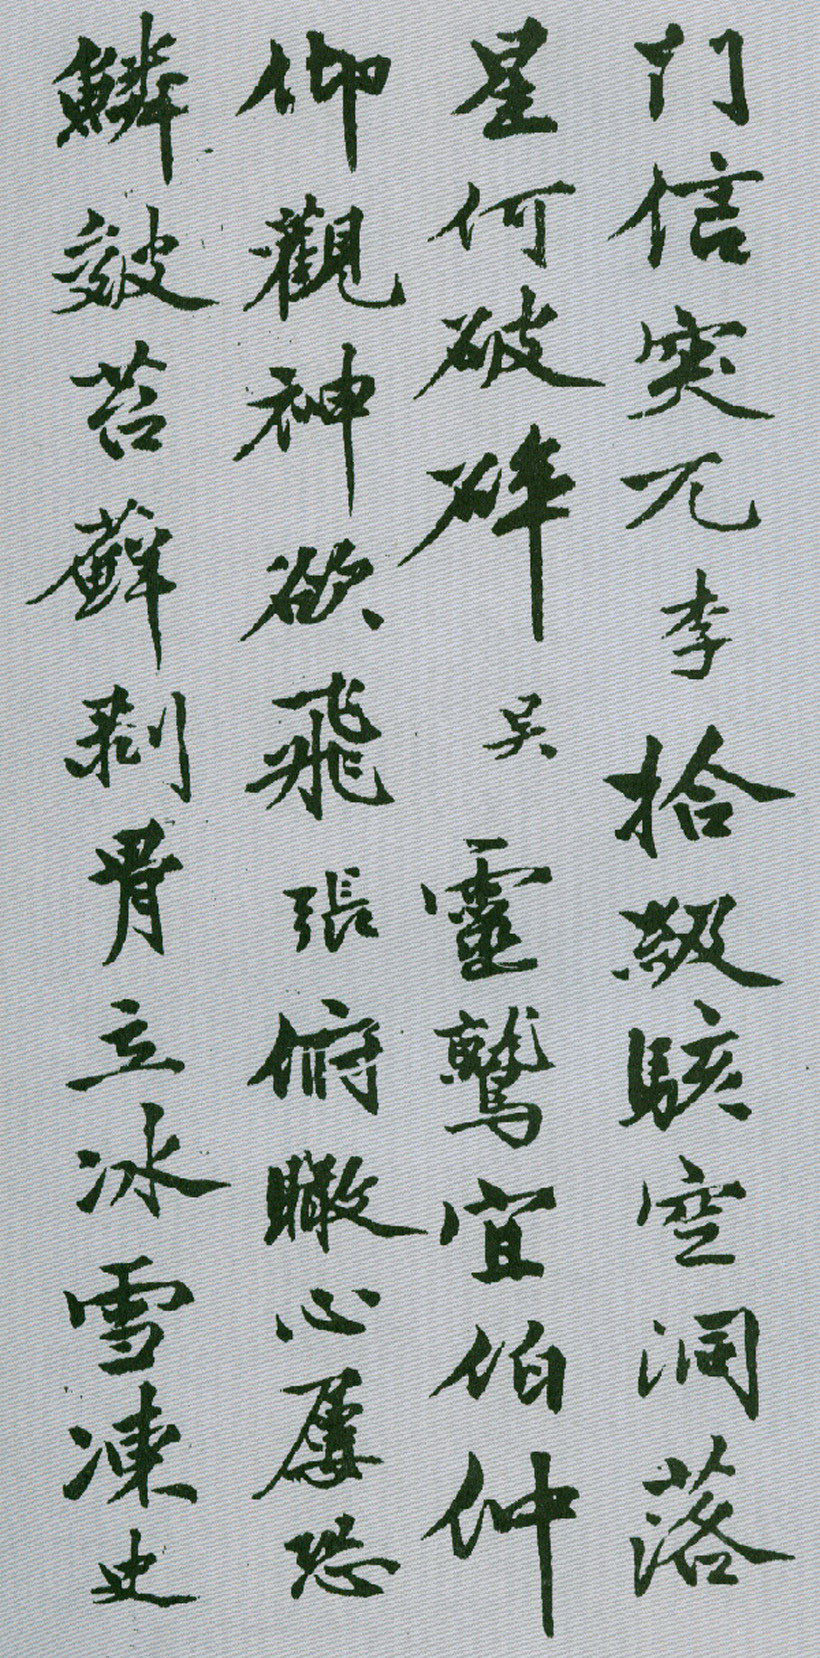 門信突兀李拾級駭空洞落
星何破碎吳靈鷲宜伯仲
仰觀神欲飛張俯瞰心屢恐
鱗皴苔蘚剥骨立冰雪凍史